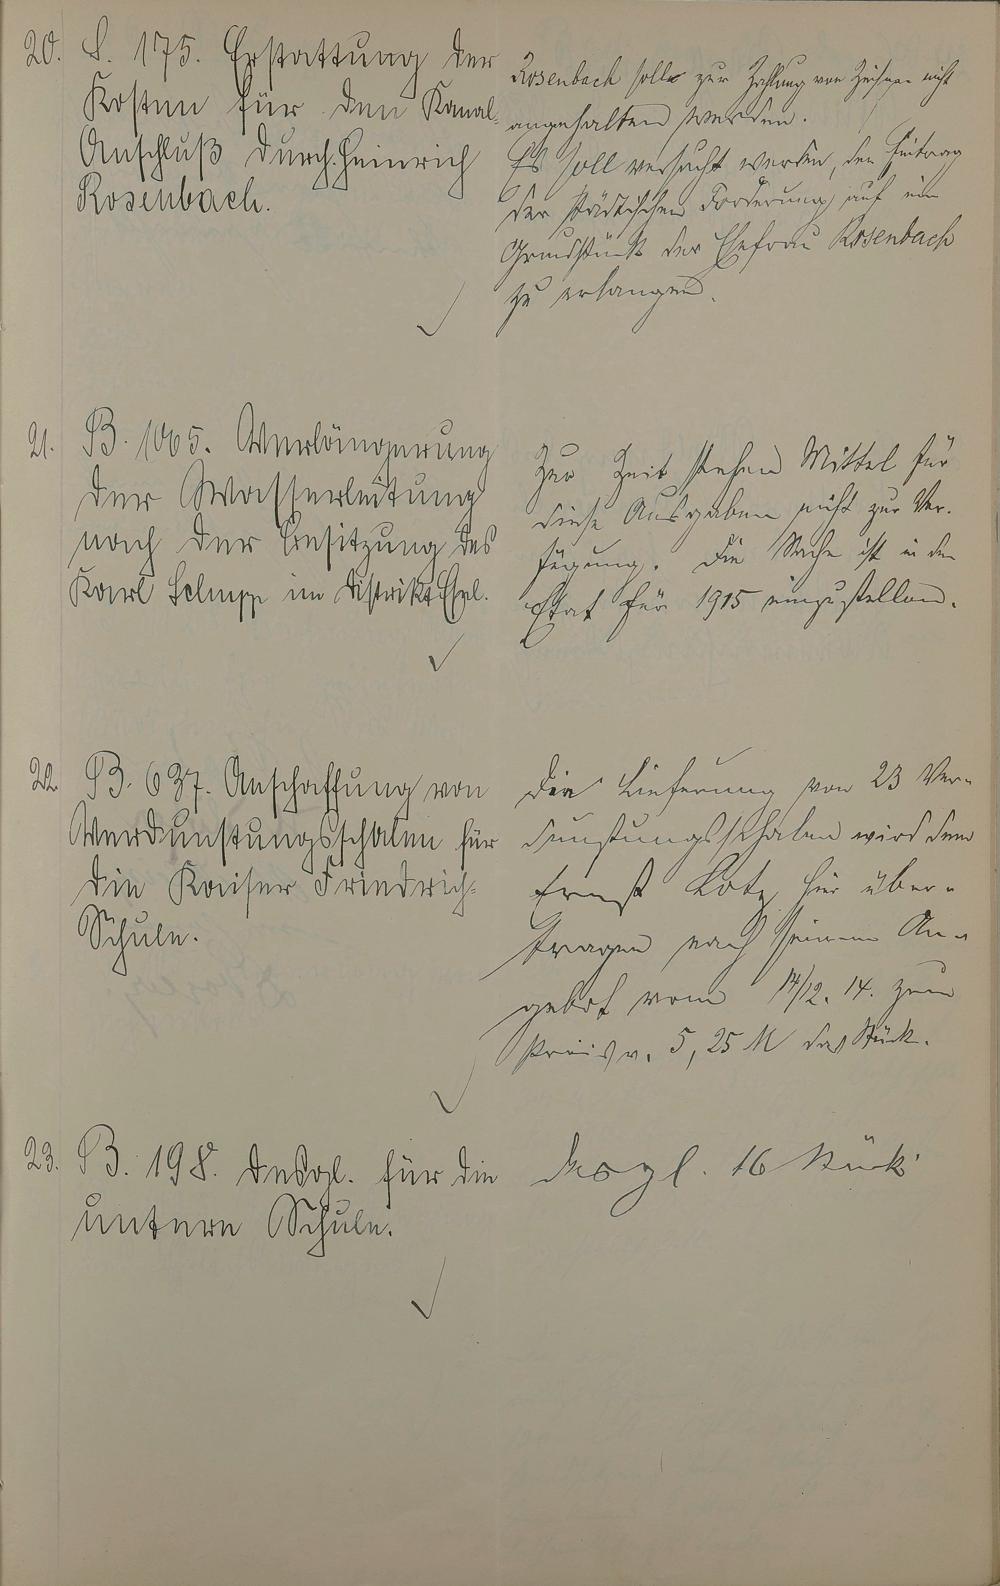 20. S. 175. Erstattung der
Kosten für den Kanal-
Anschluß durch Heinrich
Rosenbach.
Rosenbach soll zur Zahlung von Zinsen nicht
angehalten werden.
Es soll versucht werden, den Eintrag
der städtischen Forderung auf ein
Grundstück der Ehefrau Rosenbach
zu erlangen.
21. B. 1065. Verlängerung
der Wasserleitung
nach der Besitzung des
Karl Schupp im Distrikt Esel.
Zur Zeit stehen Mittel für
diese Ausgaben nicht zur Ver-
fügung. Die Sache ist in den
Etat für 1915 einzustellen.
22. B. 637. Anschaffung von
Verdunstungsschalen für
die Kaiser Friedrich-
Schule.
Die Lieferung von 23 Ver-
dunstungsschalen wird dem
Ernst Lotz hier über-
tragen nach seinem An-
gebot vom 14/12. 14. zum
Preis v. 5,25 M das Stück.
23. B. 198. Desgl. für die
untere Schule.
Desgl. 16 Stück